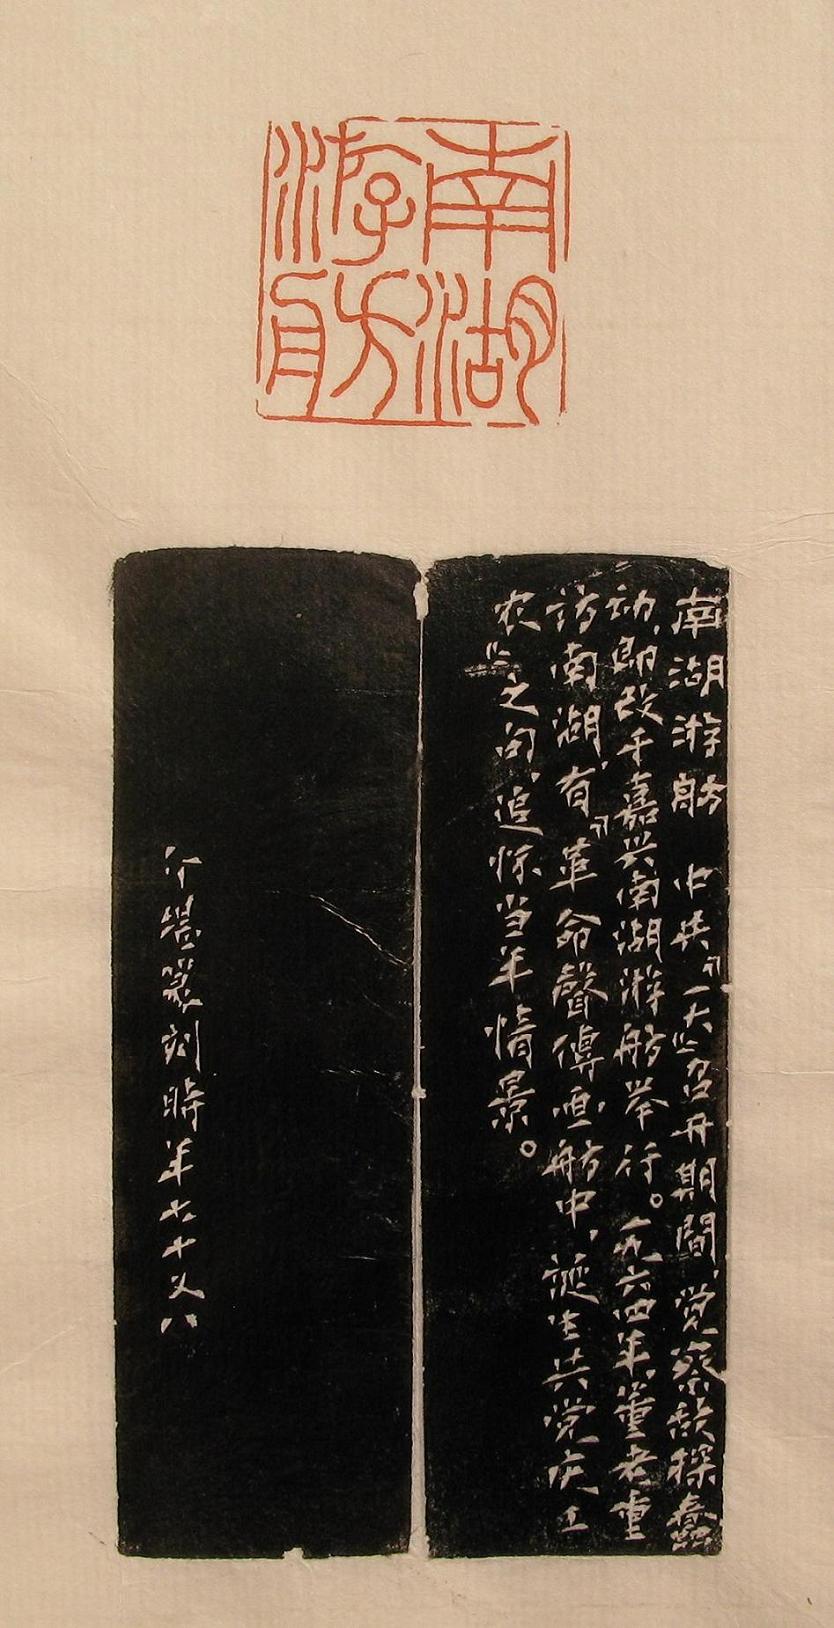 南湖
游舫
南湖游舫 中共「一大」召开期間,觉察敌探蠢
动,即改于嘉兴南湖游舫举行。一九六四年,董老重
访南湖,有「革命聲傳画舫中,诞生共党庆工
农」之句,追怀当年情景。
介堪篆刻時年七十又八